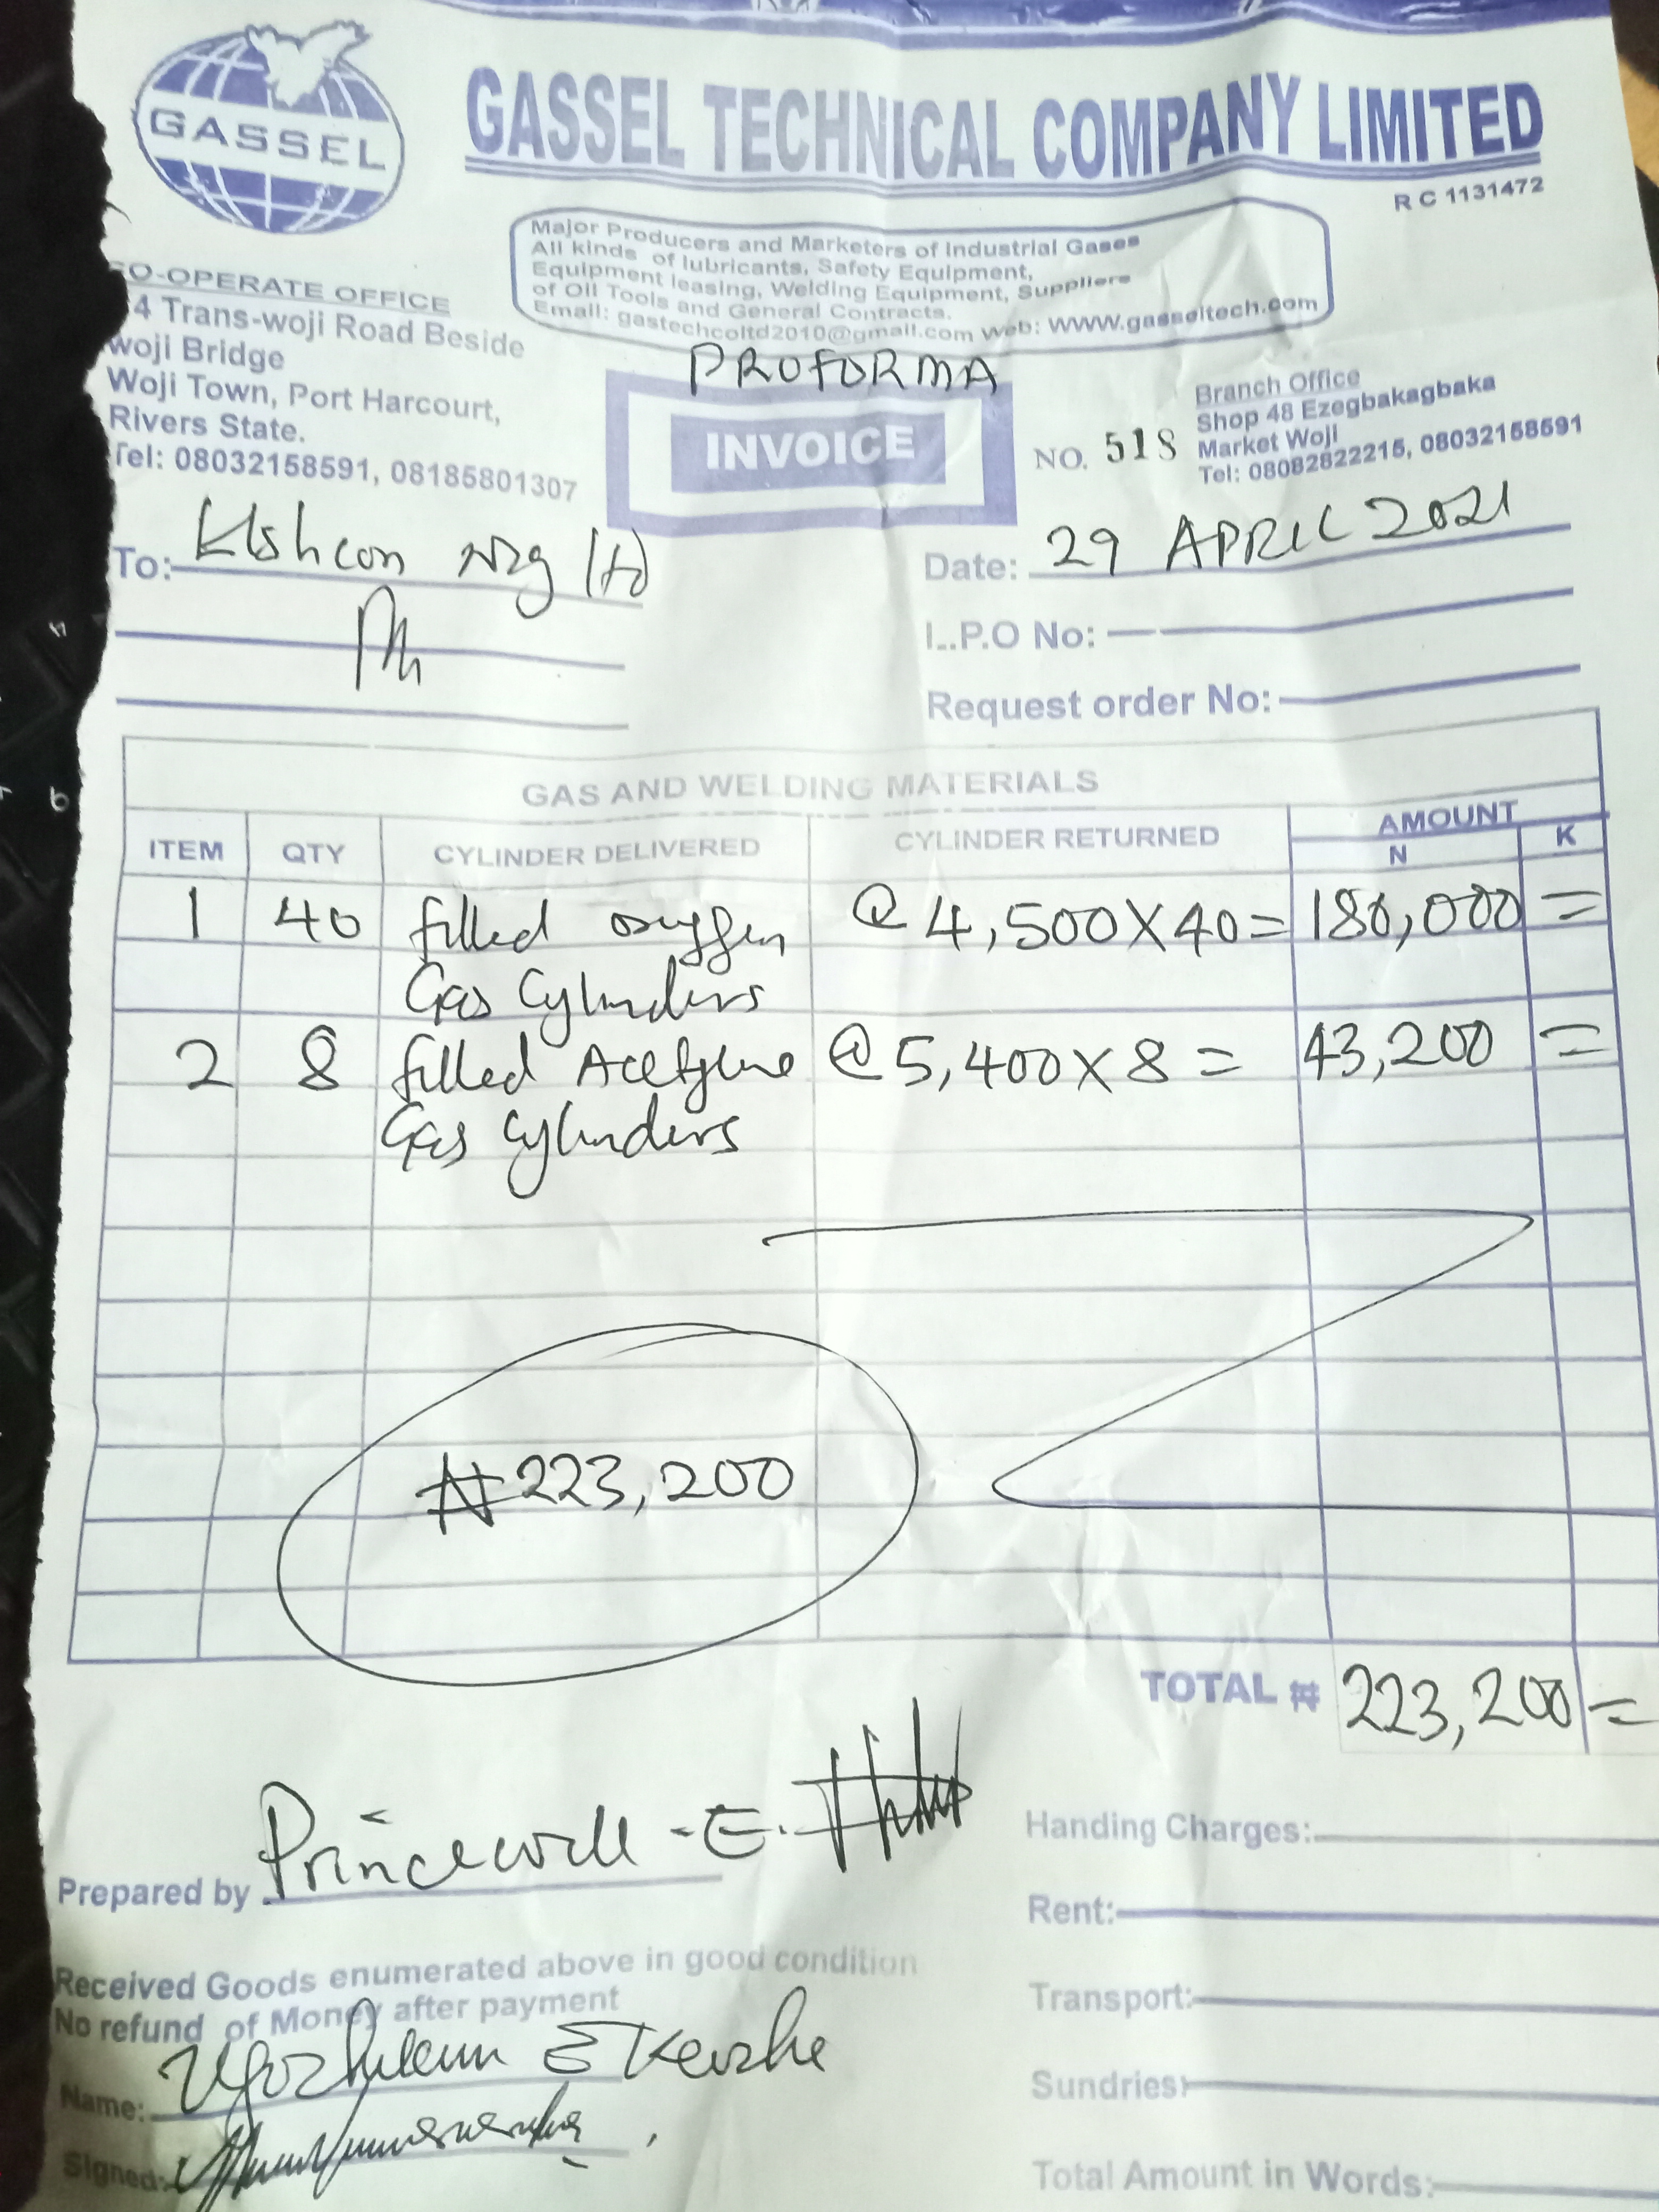 GASSEL
GASSEL TECHNICAL COMPANY LIMITED
R C 1131472
Major Producers and Marketers of Industrial Gases
All kinds of lubricants, Safety Equipment,
Equipment leasing, Welding Equipment, Suppliers
of Oil Tools and General Contracts.
Email: gastechcoltd2010@gmail.com web: www.gasseltech.com
O-OPERATE OFFICE
4 Trans-woji Road Beside
woji Bridge
Woji Town, Port Harcourt,
Rivers State.
Tel: 08032158591, 08185801307
PROFORMA
INVOICE
NO. 518
Branch Office
Shop 48 Ezegbakagbaka
Market Woji
Tel: 08082822215, 08032158591
To: Nig Ltd
Date: 29 APRIL 2021
L..P.O No:
Request order No:
GAS AND WELDING MATERIALS
ITEM QTY CYLINDER DELIVERED CYLINDER RETURNED AMOUNT
N K
1 40 filled oxygen @ 4,500 X 40 = 180,000 =
Gas Cylinders
2 8 filled Acetylene @ 5,400 X 8 = 43,200 =
Gas Cylinders
₦223,200
TOTAL ₦ 223,200 =
Prepared by Princewill - E.
Handing Charges:
Rent:
Received Goods enumerated above in good condition
No refund of Money after payment
Transport:
Name:
Sundries:
Signed:
Total Amount in Words: